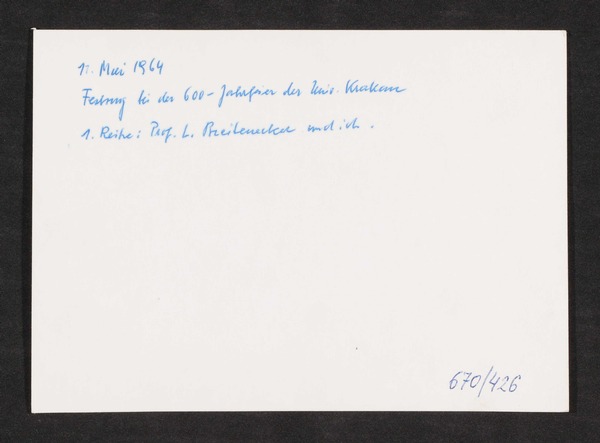 11. Mai 1964
Festzug bei der 600-Jahrfeier der Univ. Krakau
1. Reihe: Prof. L. Breitenecker und ich.
670/426